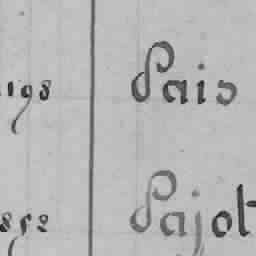 1198 Pais
852 Pajot